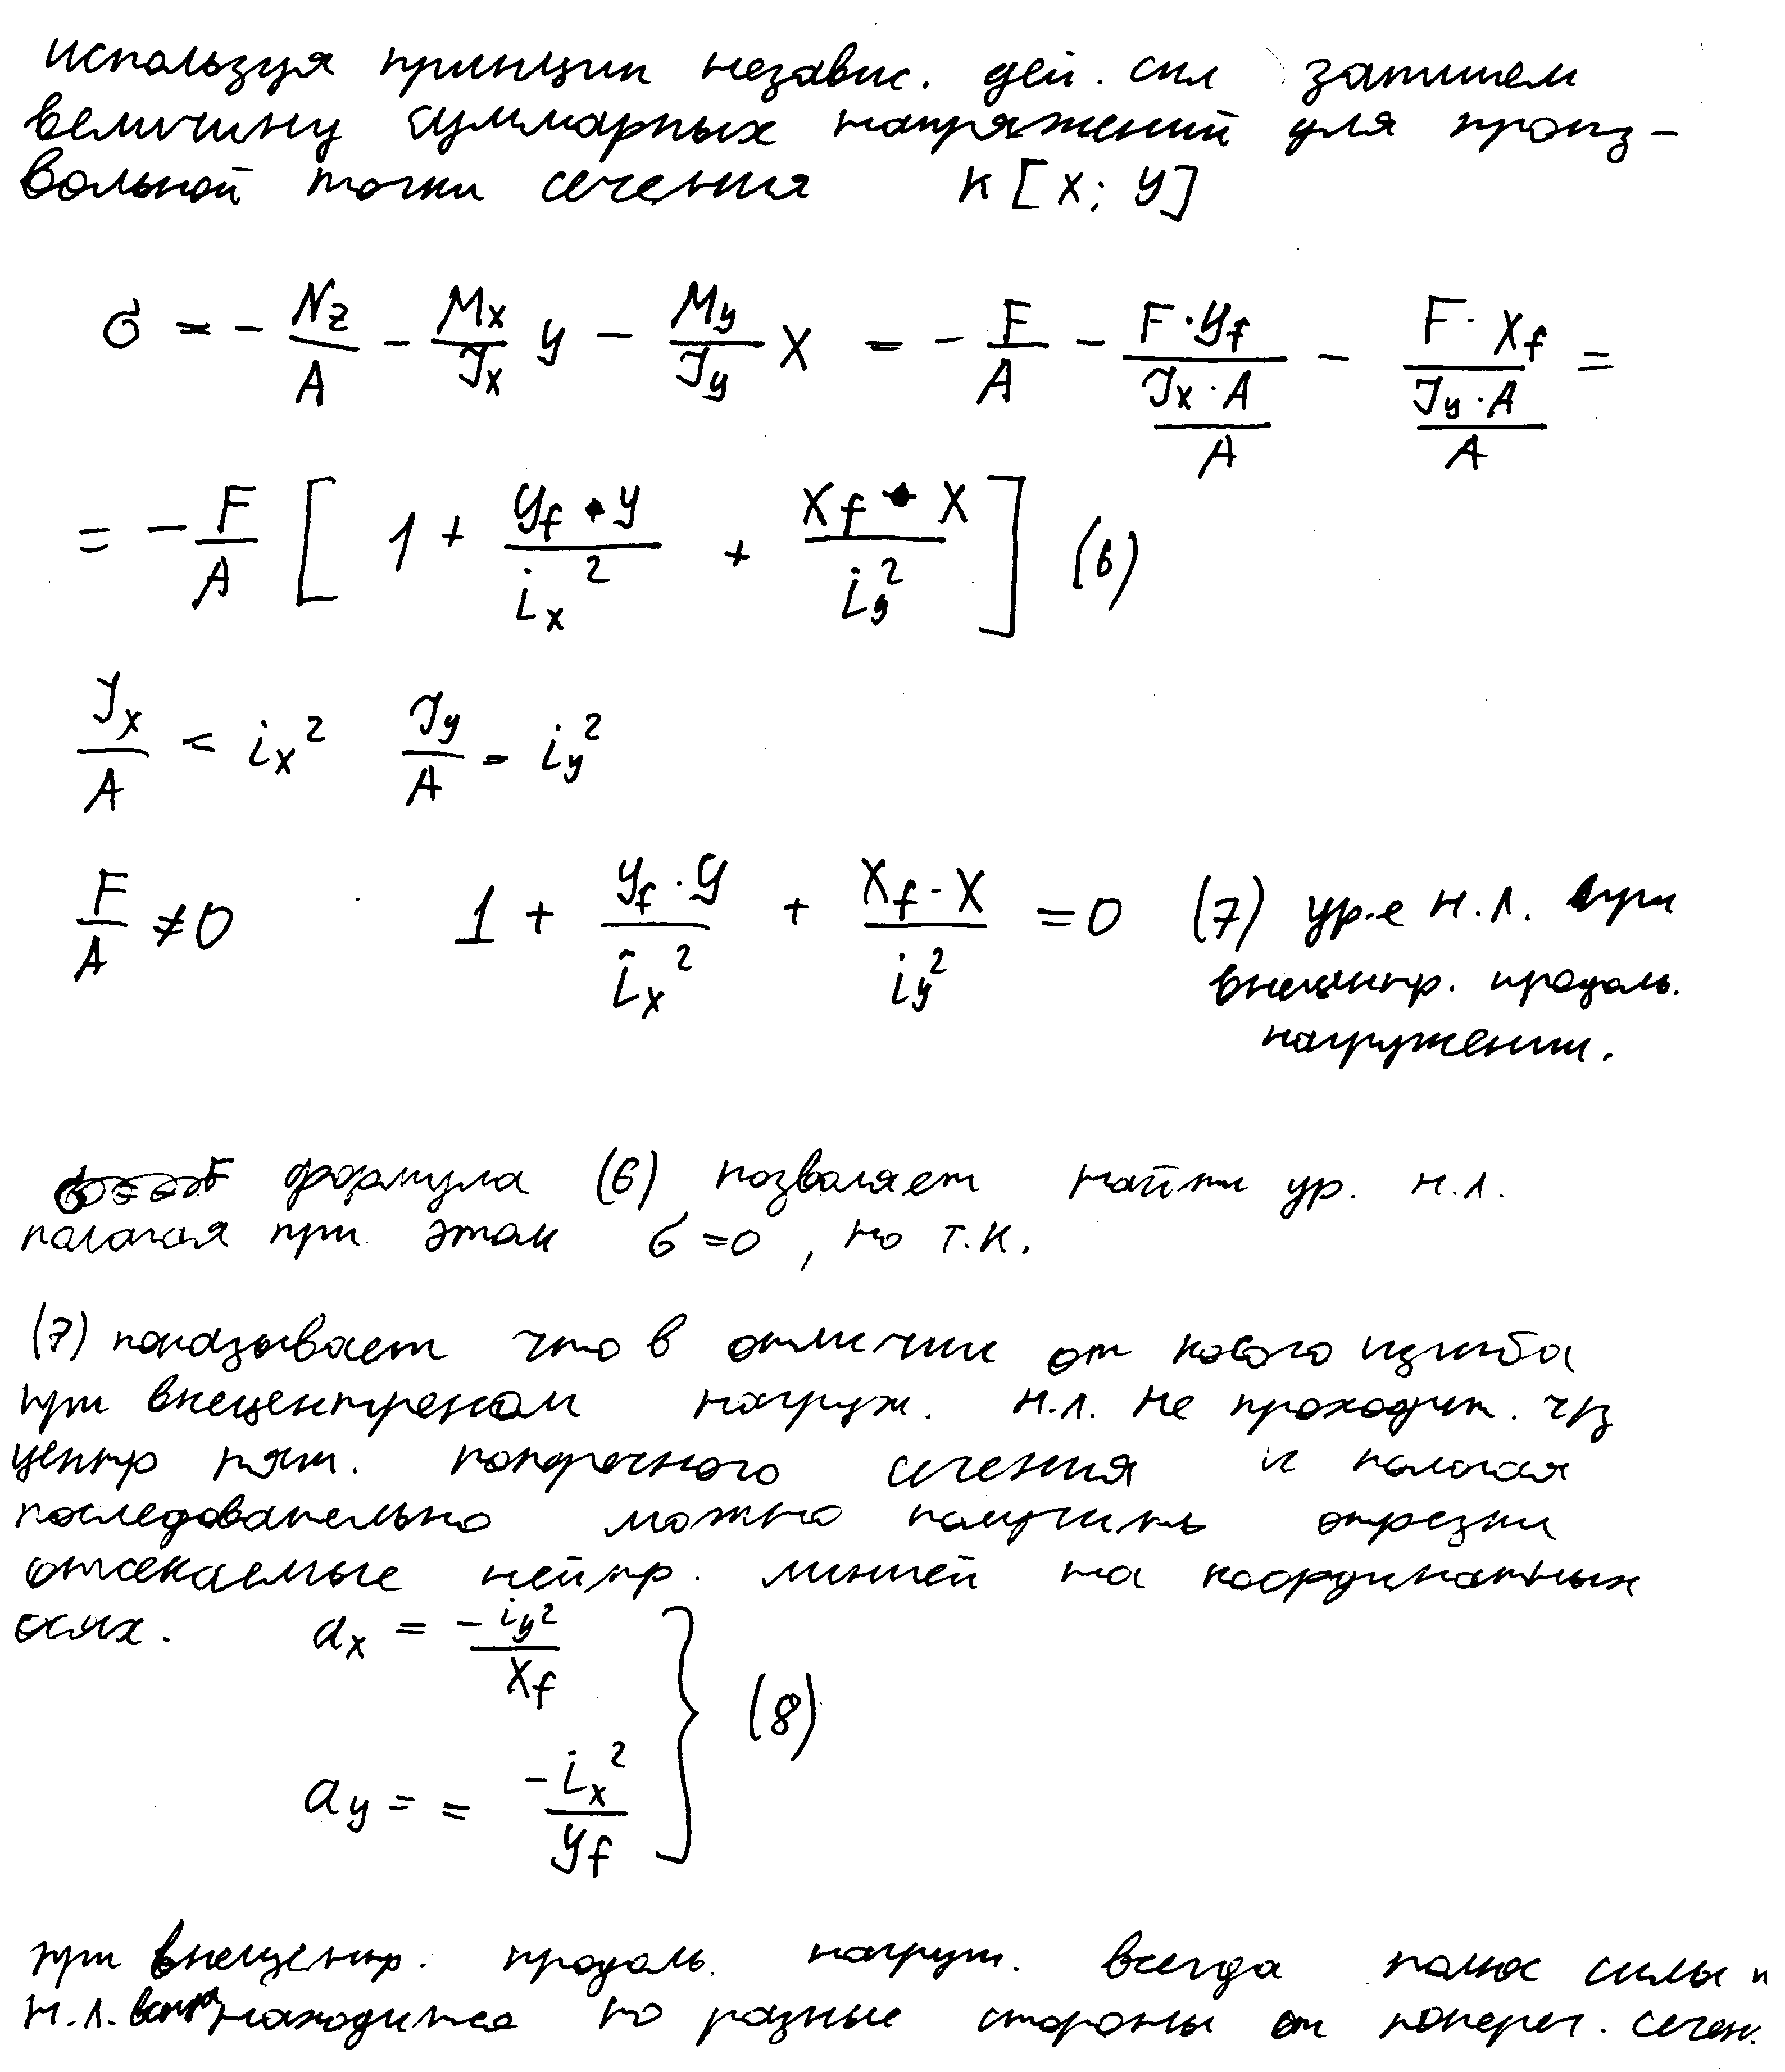 используя принцип независ. дей. сил запишем
величину суммарных напряжений для произ-
вольной точки сечения K [X; Y]
σ = - Nz/A - Mx/Jx y - My/Jy X = - F/A - F·yf/(Jx·A/A) - F·Xf/(Jy·A/A) =
= - F/A [ 1 + yf·y/ix² + Xf·X/iy² ] (6)
Jx/A = ix² Jy/A = iy²
F/A ≠ 0 1 + yf·y/ix² + Xf·X/iy² = 0 (7) ур-е н.л. при
внецентр. продоль.
нагружении.
формула (6) позволяет найти ур. н.л.
полагая при этом σ = 0, но т.к.
(7) показывает что в отличии от косого изгиба
при внецентреном нагруж. н.л. не проходит. чз
центр тяж. поперечного сечения и полагая
последовательно можно получить отрезки
отсекаемые нейтр. линией на координатных
осях. ax = -iy²/Xf
(8)
ay = = -ix²/yf
при внецентр. продоль. нагруж. всегда полюс силы и
н.л. находится по разные стороны от попереч. сечен.